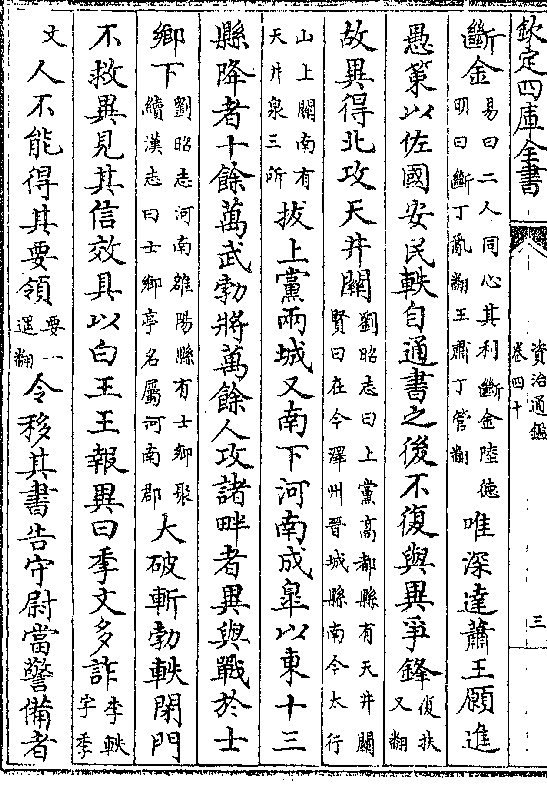 欽定四庫全書
資治通鑑
卷四十
三
斷金易曰二人同心其利斷金陸德
明曰斷丁亂翻王肅丁管翻唯深達蕭王願進
愚策以佐國安民軼自通書之後不復與異爭鋒復扶
又翻
故異得北攻天井關劉昭志曰上黨高都縣有天井關
賢曰在今澤州晉城縣南今太行
山上關南有
天井泉三所拔上黨兩城又南下河南成臯以東十三
縣降者十餘萬武勃將萬餘人攻諸畔者異與戰於士
鄉下劉昭志河南雒陽縣有士鄉聚
續漢志曰士鄉亭名屬河南郡大破斬勃軼閉門
不救異見其信效具以白王王報異曰季文多詐李軼
字季
文人不能得其要領要一
遥翻令移其書告守尉當警備者